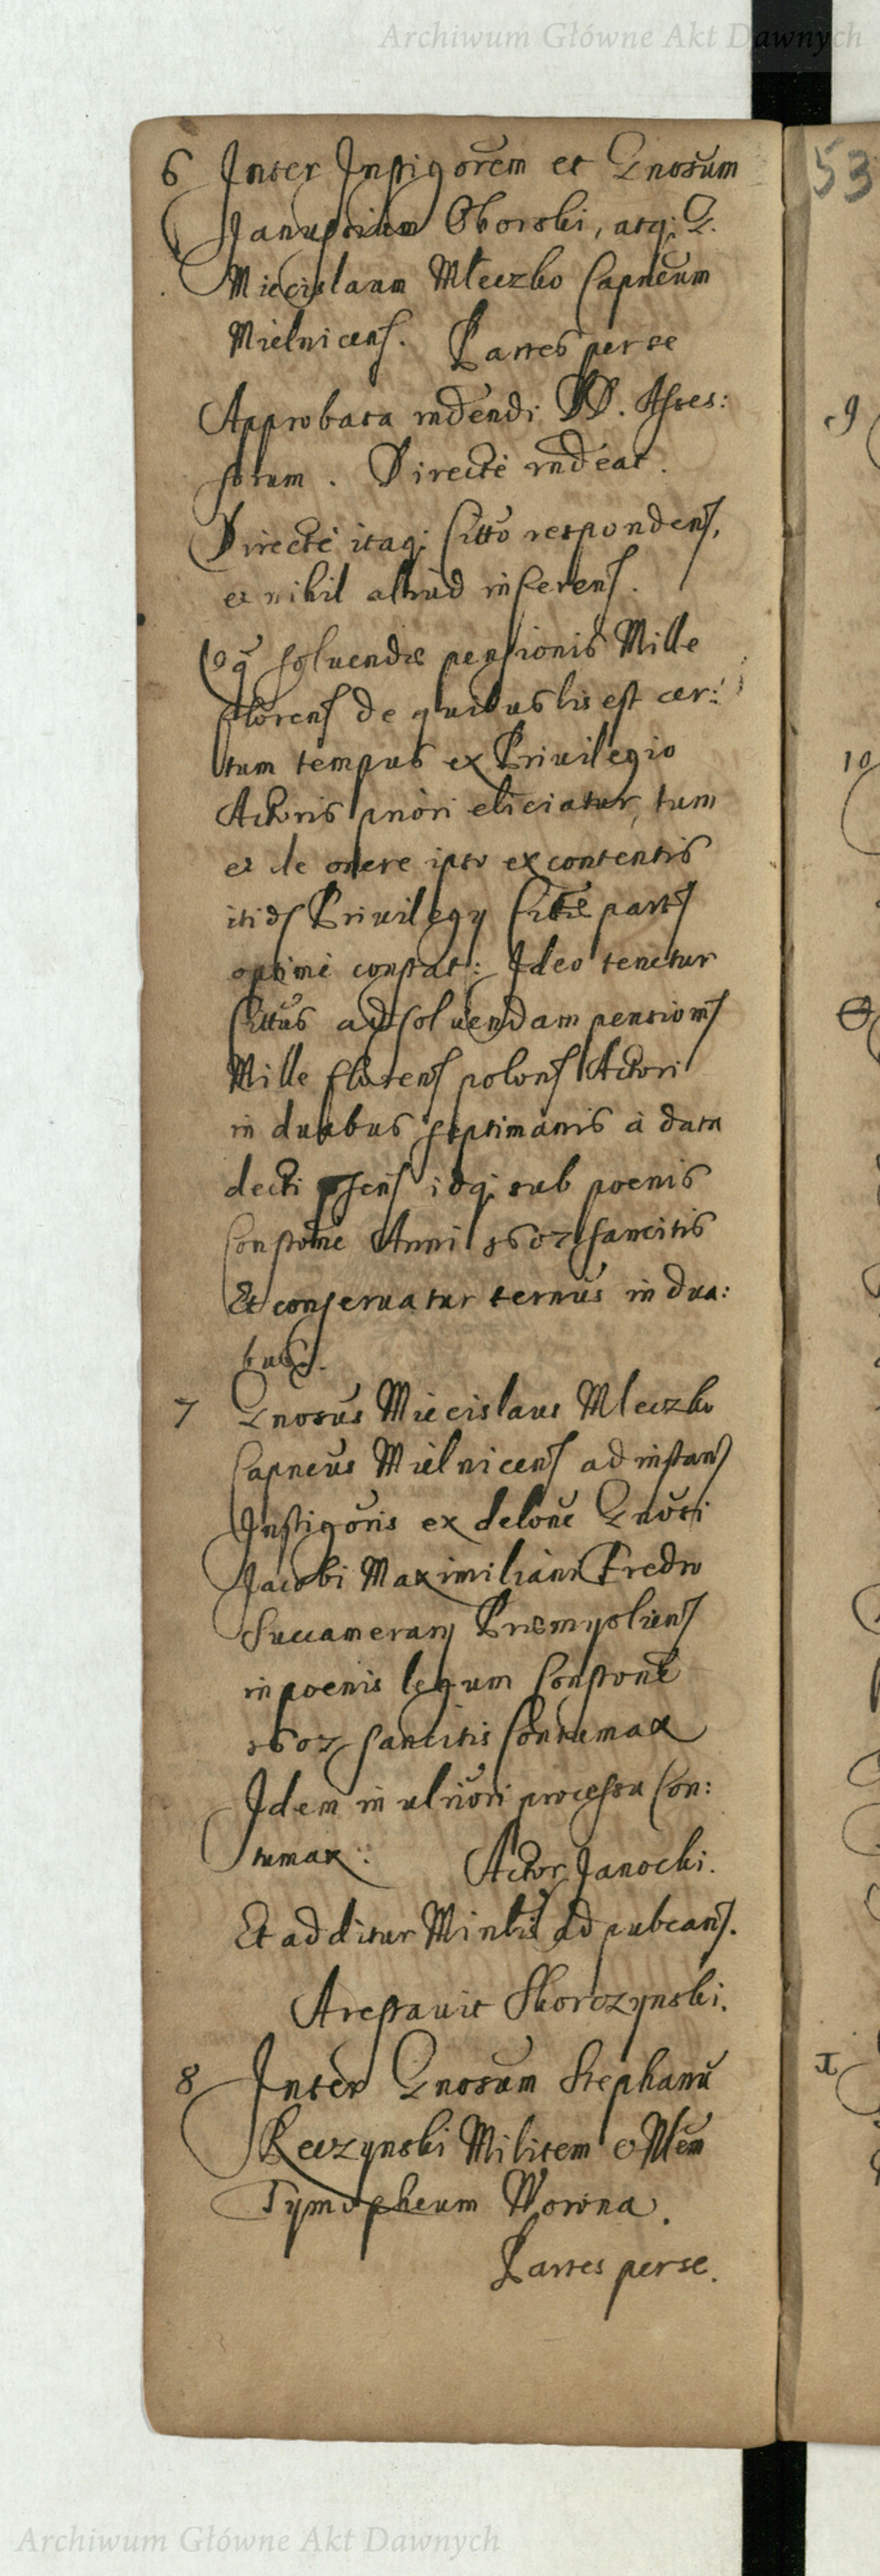 Archiwum Główne Akt Dawnych
53
6 Inter Instigorem et Gnosum
Janussium Oborski, atq; G.
Miecislaum Mleczko Capneum
Mielnicens. Partes per se
Approbata rndendi DD. Asses:
sorum. Directe rndeat.
Directe itaq; Citto respondens,
et nihil aliud inferens.
Coq soluendae pensionis Mille
florens de quibus lis est cer:
tum tempus ex Priuilegio
Actoris pnori eliciatur, tum
et de onere ipso ex contentis
itids Priuilegy Cittae parts
optime constat: Ideo tenetur
Cittus ad soluendam pensionis
Mille florens polons Actori
in duabus septimanis à data
decti psens idq; sub poenis
Constone Anni 1607 sancitis
Et conseruatur ternus in dua:
bus.
7 Gnosus Miecislaus Mleczko
Capneus Mielnicens ad instans
Instigoris ex delone Gnosi
Jacobi Maximiliani Fredro
Succamerarij Praemysliens
in poenis legum Constone
1607 sancitis Contumax
Idem in ulriori processu Con:
tumax: Actor Janocki.
Et additur Minlis ad pubcans.
Arestauit Skorczynski.
8 Inter Gnosum Stephanu
Reczynski Militem et
Tymopheum Worona.
Partes per se.
9
10
Archiwum Główne Akt Dawnych